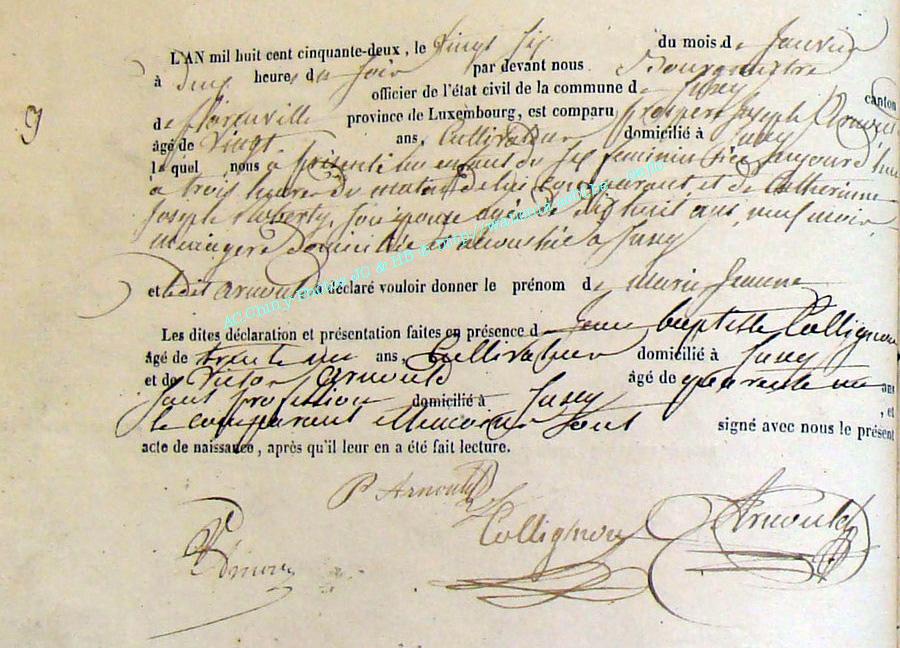 L'AN mil huit cent cinquante-deux, le Vingt six du mois de Janvier
à heures du soir par devant nous Bourgmestre
officier de l'état civil de la commune de Jusey canton
9
de Florenville province de Luxembourg, est comparu prosper Joseph Arnould
âgé de Vingt ans, Cultivateur domicilié à Jusey
lequel nous a présenté un enfant du sexe féminin née aujourd'hui
a trois heure du matin de lui comparant et de Catherinne
Joseph Roberty, son épouse agée de dix huit ans, neuf mois,
menagere domiciliée a Jusey
et ledit arnould a déclaré vouloir donner le prénom de Marie Jeanne
Les dites déclaration et présentation faites en présence de Jean baptiste Collignon
âgé de trente un ans, Cultivateur domicilié à Jusey
et de Victor Arnould âgé de quarante un ans
sans profession domicilié à Jusey , et
le comparant et témoins ont signé avec nous le présent
acte de naissance, après qu'il leur en a été fait lecture.
P Arnould
Collignon
Arnould